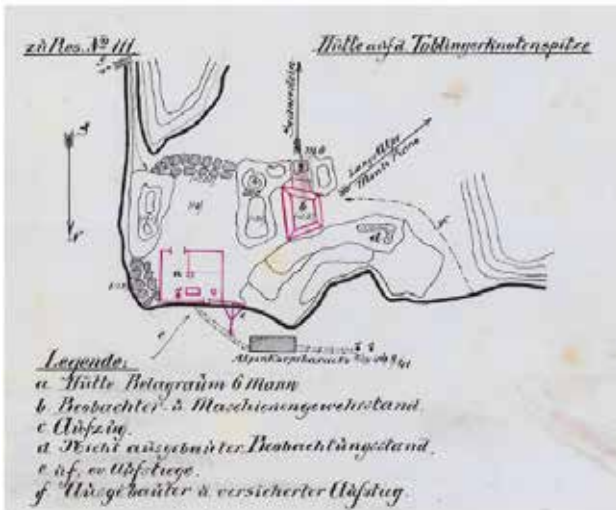 zu Res. No III.
Hütte auf d. Toblingerknotenspitze
S
N
b
a
d
c
f
Monte Piano
Alpenkorpsbaracke
Legende:
a Hütte Belagraum 6 Mann
b Beobachter- u. Maschienengewehrstand.
c Aufzug.
d Nicht ausgebauter Beobachtungsstand.
e uf. ev Aufstiege.
f Ausgebauter u. versicherter Aufstieg.